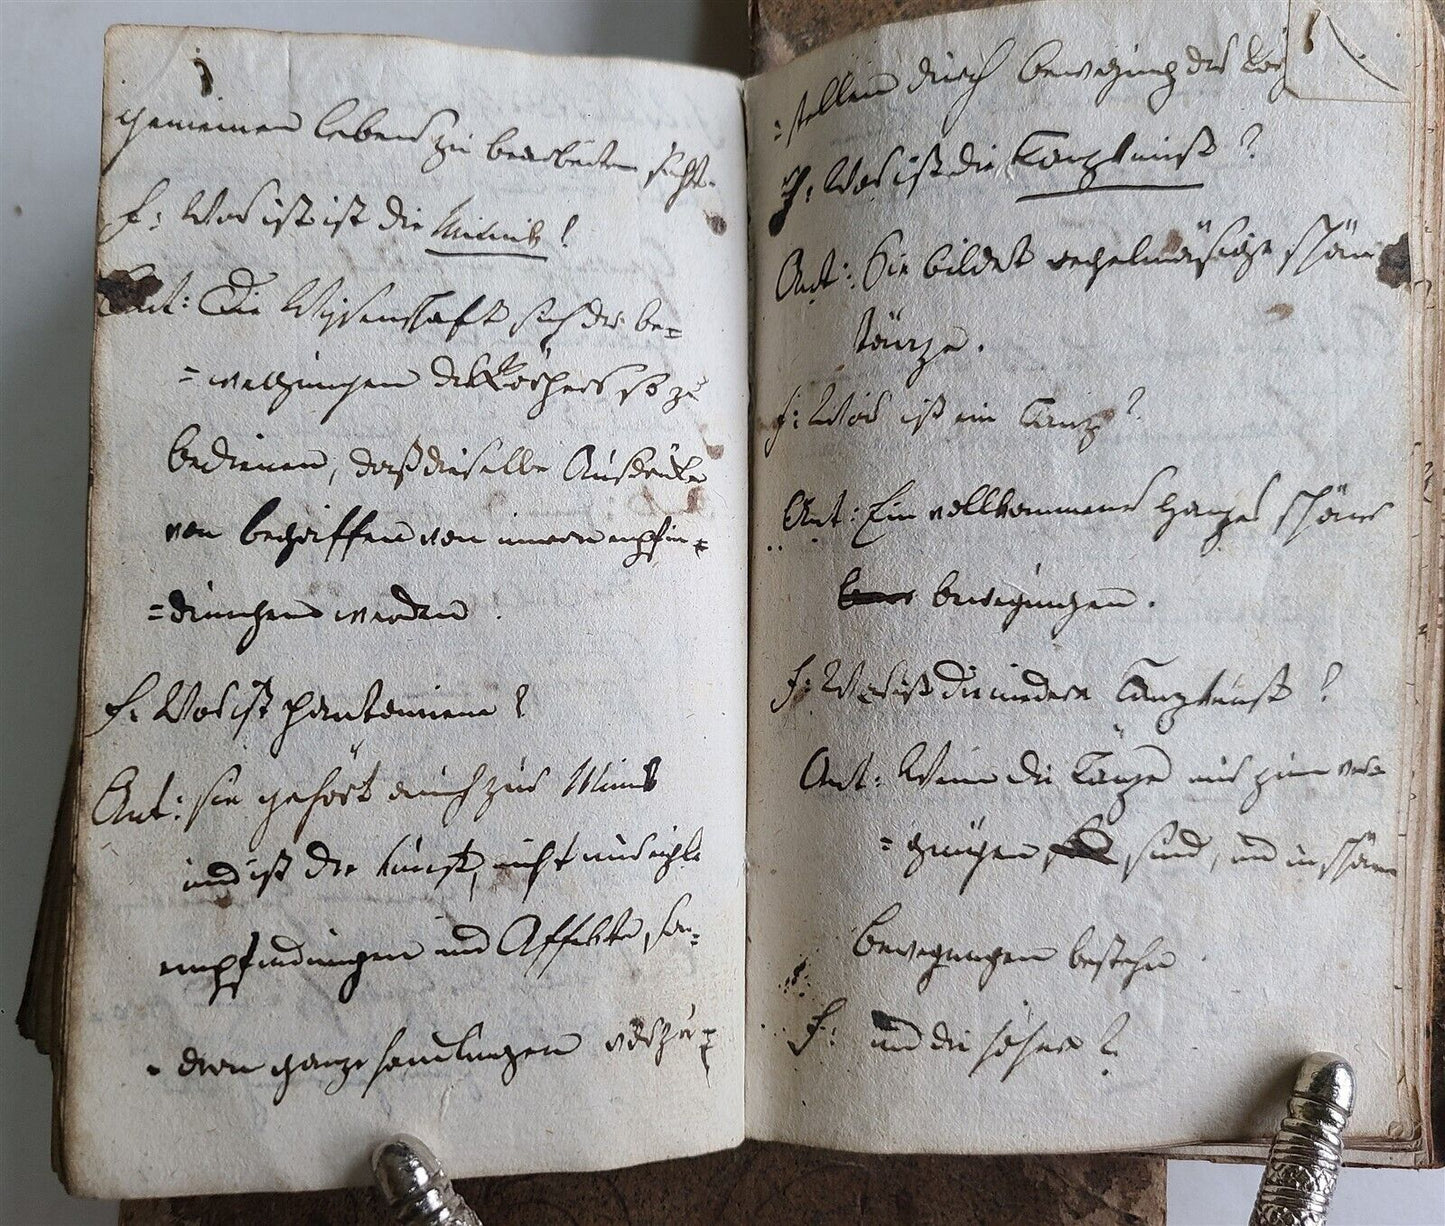 gemeinen lebens zu bearbeiten sucht.
f: Was ist ist die Mimik?
Ant: Die Wißenschaft sich der be=
=wegungen des Körpers so zu
bedienen, daß dieselbe Ausdrüke
von begriffen von innern empfin=
=dungen werden.
f: Was ist pantomime?
Ant: sie gehört auch zur Mimik
und ist die kunst, nicht nur
empfindungen und Affekte, son=
=dern ganze handlungen vorzu=
=stellen durch bewegung des
f: Was ist die Tanzkunst?
Ant: Sie bildet regelmäsige schöne
tänze.
f: Was ist ein Tanz?
Ant: Ein vollkommenes ganzes schöner
bewegungen.
f: Was ist die niedere Tanzkunst?
Ant: Wenn die Tänze nur zum ver=
=gnügen sind, und in schönen
bewegungen bestehn
f: und die höhere?